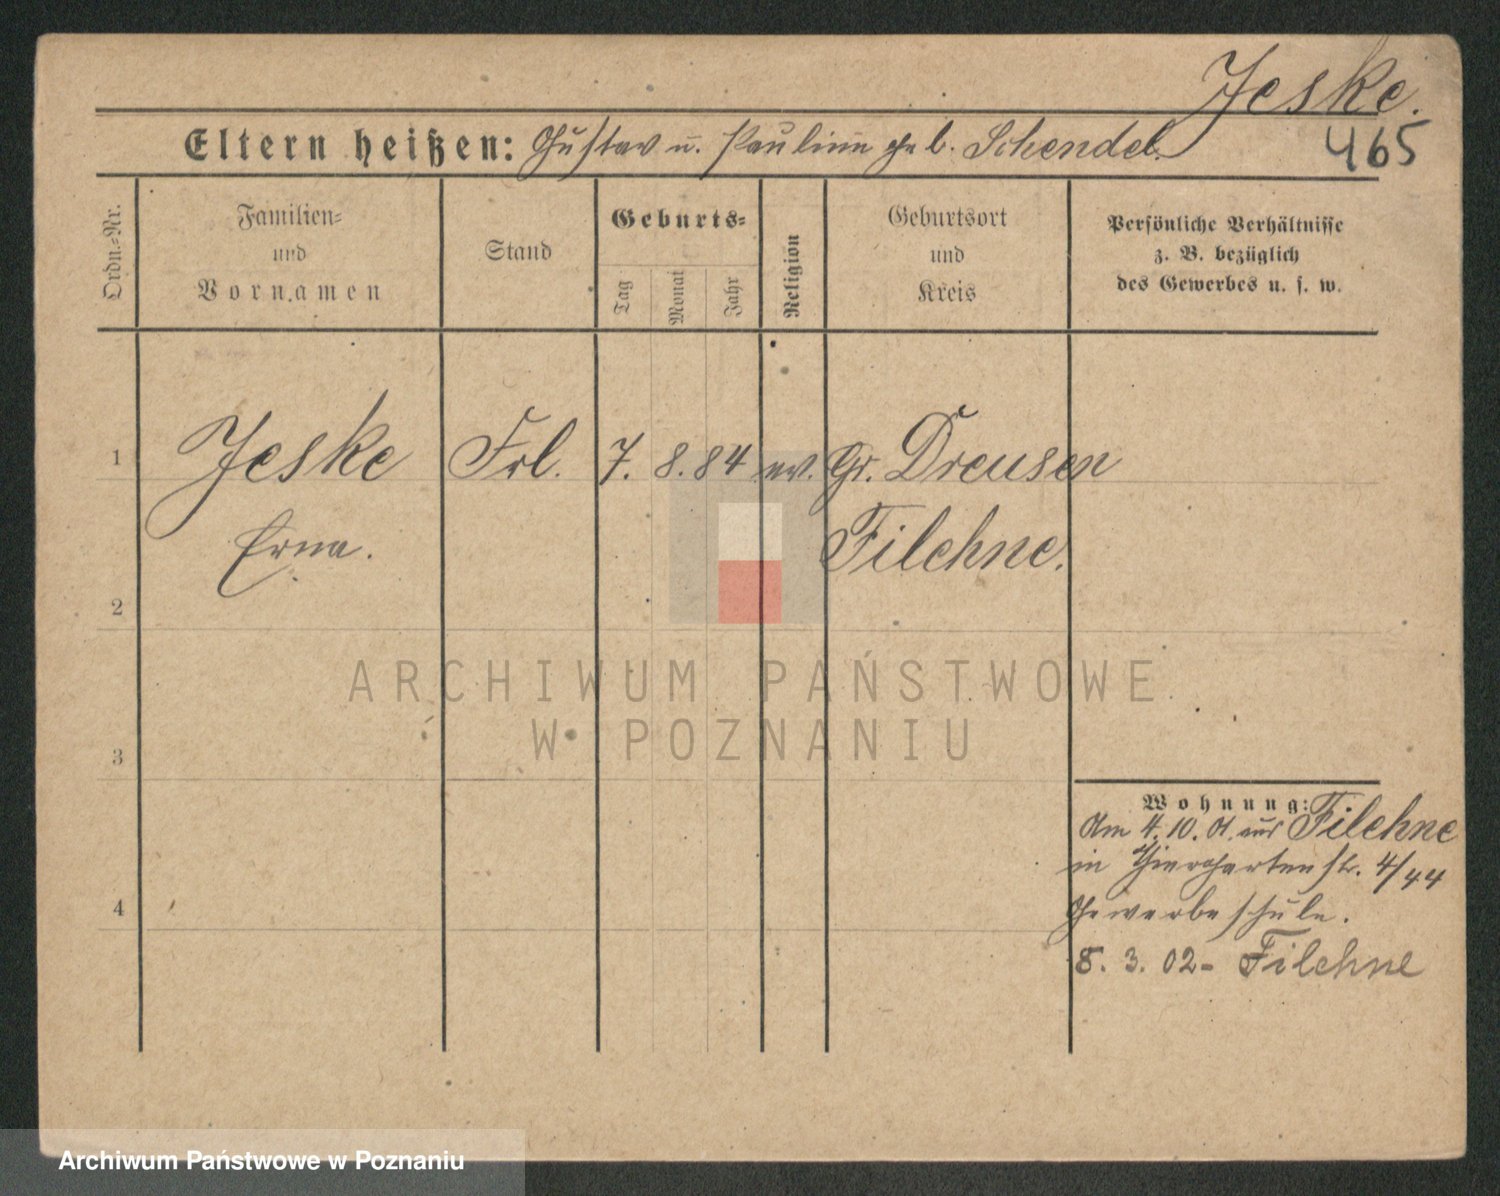 Jeske.
465
Eltern heißen: Gustav u. Pauline geb. Schendel.
Ordn.-Nr.
Familien-
und
Vornamen
Stand
Geburts-
Tag
Monat
Jahr
Religion
Geburtsort
und
Kreis
Persönliche Verhältnisse
z. B. bezüglich
des Gewerbes u. s. w.
1
Jeske Frl. 7. 8. 84 ev. Gr. Dreusen
Erna. Filehne.
2
ARCHIWUM PAŃSTWOWE
W POZNANIU
3
Wohnung:
Am 4. 10. 01 aus Filehne
in Thiergartenstr. 4/44
Gewerbeschule.
4
8. 3. 02 - Filehne
Archiwum Państwowe w Poznaniu